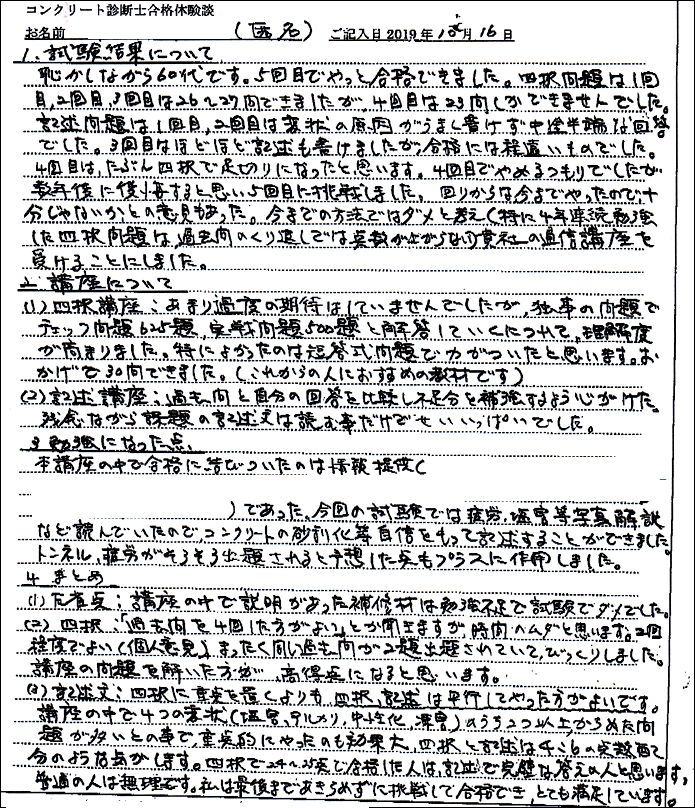 コンクリート診断士合格体験談
お名前 （匿名） ご記入日 2019年 12月 16日
1. 試験結果について
恥かしながら60代です。5回目でやっと合格できました。四択問題は1回
目,2回目,3回目は26〜27問できましたが、4回目は23問しかできませんでした。
記述問題は1回目,2回目は変状の原因がうまく書けず中途半端な回答
でした。3回目はほどほど記述も書けましたが合格には程遠いものでした。
4回目は、たぶん四択で足切りになったと思います。4回目でやめるつもりでしたが
数年後に後悔すると思い5回目に挑戦しました。回りからは今までやったので十
分じゃないかとの意見もあった。今までの方法ではダメと考え（特に4年連続勉強
した四択問題は過去問のくり返しでは点数が上がらない）貴社の通信講座を
受けることにしました。
2. 講座について
(1) 四択講座：あまり過度の期待はしていませんでしたが、独自の問題で
チェック問題625題,実戦問題500題と解答していくにつれて、理解度
が高まりました。特によかったのは短答式問題で力がついたと思います。お
かげで30問できました。（これからの人におすすめの教材です）
(2) 記述講座：過去問と自分の回答を比較し不足分を補強するよう心がけた。
残念ながら課題の記述文は読む事だけでせいいっぱいでした。
3 勉強になった点
本講座の中で合格に結びついたのは情報提供（
）であった、今回の試験では疲労,塩害等写真解説
など読んでいたのでコンクリートの砂利化等自信をもって記述することができました。
トンネル、疲労がそろそろ出題されると予想した点もプラスに作用しました。
4 まとめ
(1) 反省点：講座の中で説明があった補修材は勉強不足で試験でダメでした。
(2) 四択：「過去問を4回した方がよい」とか聞きますが時間のムダと思います。2回
程度でよい（個人意見）まったく同じ過去問が2題出題されていて、びっくりしました。
講座の問題を解いた方が、高得点になると思います。
(3) 記述文：四択に重点を置くよりも、四択,記述は平行してやった方がよいです。
講座の中で4つの変状（塩害,アルカリ,中性化,凍害）のうち2つ以上からめた問
題が多いとの事で重点的にやったのも効果大、四択と記述は4:6の点数配
分のような気がします。四択で24〜25点で合格した人は、記述で完璧な答えの人と思います。
普通の人は無理です。私は最後まであきらめずに挑戦して合格でき、とても満足しています。